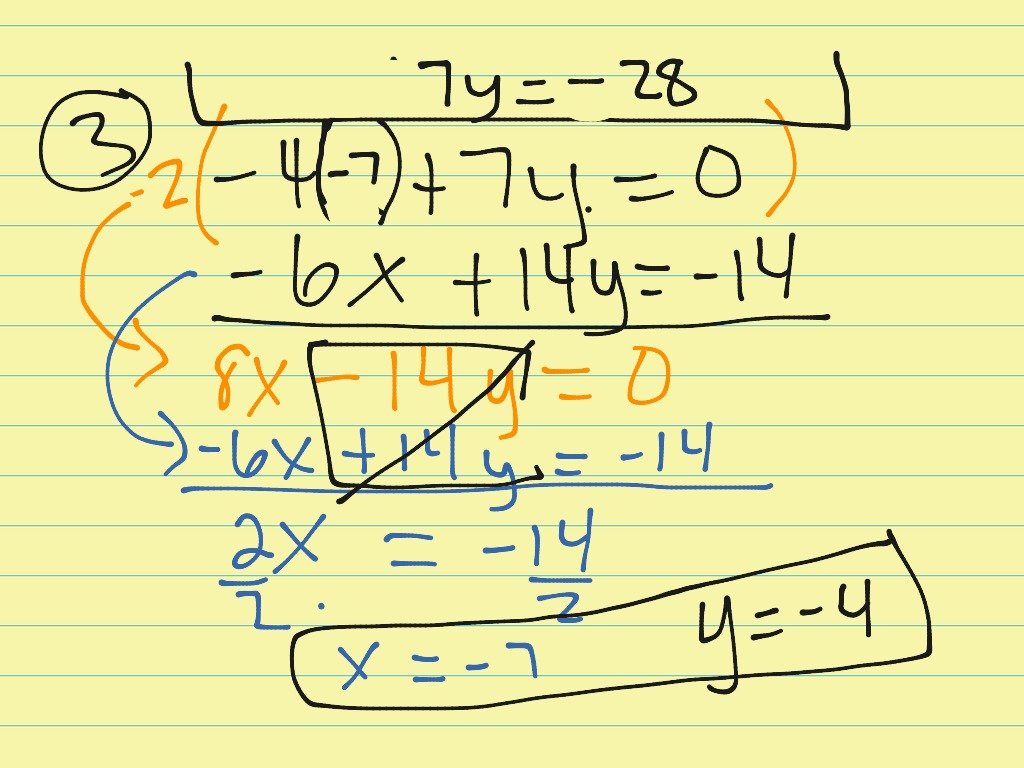 7y = -28
③
-2(-4(-7) + 7y = 0)
-6x + 14y = -14
8x - 14y = 0
-6x + 14y = -14
2x = -14
2 2
x = -7 y = -4